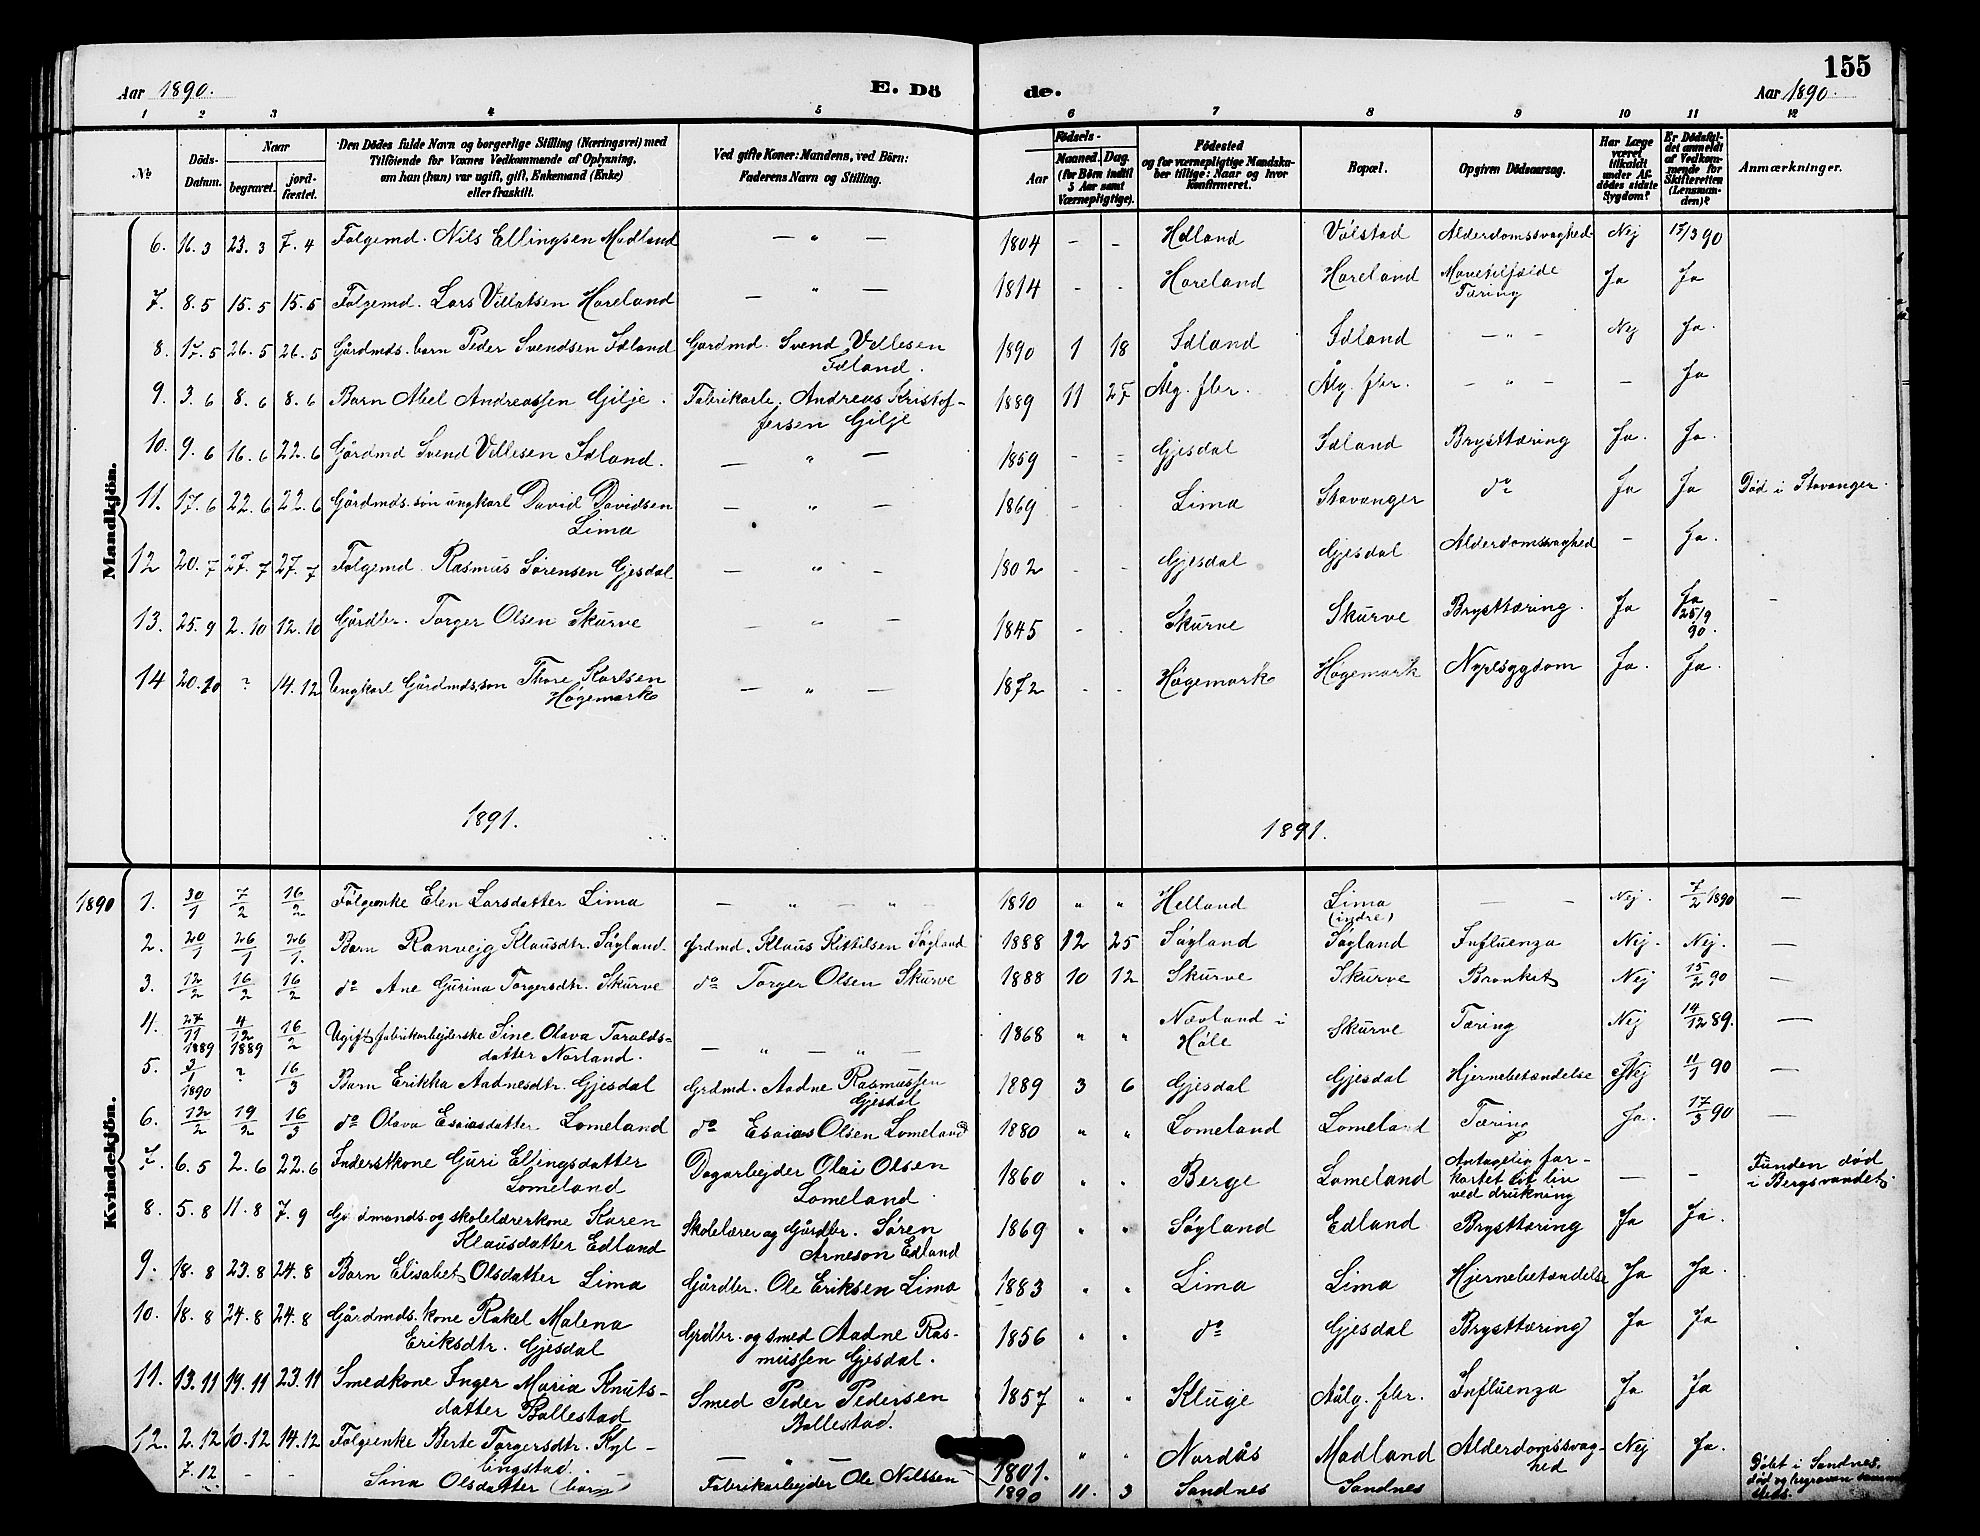 155
Aar 1890.
E. Dö
de.
Aar 1890.
1 2 3 4 5 6 7 8 9 10 11 12
№
Döds-
Datum.
Naar
begravet.
jord-
fæstet.
Den Dödes fulde Navn og borgerlige Stilling (Næringsvei) med
Tilföiende for Voxnes Vedkommende af Oplysning,
om han (hun) var ugift, gift, Enkemand (Enke)
eller fraskilt.
Ved gifte Koner: Mandens, ved Börn:
Faderens Navn og Stilling.
Födsels-
Aar
Maaned.
Dag.
(for Börn indtil
5 Aar samt
Værnepligtige).
Födested
og for værnepligtige Mandska-
ber tillige: Naar og hvor
konfirmeret.
Bopæl.
Opgiven Dödsaarsag.
Har Læge
været
tilkaldt
under Af-
dödes sidste
Sygdom?
Er Dödsfal-
det anmeldt
af Vedkom-
mende for
Skifteretten
(Lensman-
den)?
Anmærkninger.
Mandkjön.
6. 16.3 23.3 7.4 Følgemd. Nils Ellingsen Madland — " — 1804 - - Hdland Vølstad Alderdomssvaghed Nej 17/3 90
7. 8.5 15.5 15.5 Følgemd. Lars Villatsen Horeland — " — 1814 - - Horeland Horeland Mavetilfælde Ja Ja
Tæring
8. 17.5 26.5 26.5 Gårdmds. barn Peder Svendsen Idland Gardmd. Svend Villesen 1890 1 18 Idland Idland — " — Nej Ja.
Idland.
9. 3.6 8.6 8.6 Barn Abel Andreassen Gilje. Fabrikarb. Andreas Kristof- 1889 11 27 Ålg. fbr. Ålg. fbr. — " — — Ja
fersen Gilje
10. 9.6 16.6 22.6 Gårdmd Svend Villesen Idland. — " — 1859 - - Gjesdal Idland Brysttæring Ja. Ja.
11. 17.6 22.6 22.6 Gårdmds. søn ungkarl David Davidsen — " — 1869 - - Lima Stavanger do Ja Ja Død i Stavanger.
Lima
12 20.7 27.7 27.7 Følgemd. Rasmus Sørensen Gjesdal. — " — 1802 - - Gjesdal Gjesdal Alderdomssvaghed — Ja.
13. 25.9 2.10 12.10 Gårdbr. Torger Olsen Skurve — " — 1845 - - Skurve Skurve Brysttæring. Ja Ja -
25/9
90.
14 20.10 ? 14.12 Ungkarl Gårdmds.søn Thore Karlsen — " — 1872 - - Høgemark Høgemark Nyresygdom Ja. Ja.
Høgemark
1891.
1891.
Kvindekjön.
1890 1. 30/1 7/2 16/2 Følgeenke Elen Larsdatter Lima — " — " — 1810 " " Helland Lima — — Nej. 7/2 1890 —
(indre)
2. 20/1 26/1 26/1. Barn Ranveig Klausdtr. Søyland. Grdmd. Klaus Kittilsen Søyland 1888 12 25 Søyland Søyland Influenza Nej. Nej. —
3. 12/2 16/2 16/2 do Ane Gurina Torgersdtr. Skurve do Torger Olsen Skurve 1888 10 12 Skurve Skurve Bronket Nej 15/2 90 —
4. 27/11 1889 4/12 1889 16/2 Ugift fabrikarbejderske Sine Olava Tarolds- — " — " — 1868 " " Novland i Skurve Tæring Nej 14/12 89. —
datter Norland. Høle
5. 3/1 1890 ? 16/3 Barn Erikka Aadnesdtr. Gjesdal Grdmd. Aadne Rasmussen 1889 3 6 Gjesdal Gjesdal Hjernebetændelse Nej 11/1 90 —
Gjesdal
6. 12/2 19/2 16/3 do Olava Esaiasdatter Lomeland do Esaias Olsen Lomeland 1880 " " Lomeland Lomeland Tæring Ja. 17/3 90 —
7. 6.5 2.6 22.6 Inderstkone Guri Ellingsdatter Dagarbejder Olai Olsen 1860 " " Berge Lomeland Antagelig for- — — Funden død
Lomeland Lomeland. kortet sit liv i Bergsvandet.
ved drukning
8. 5.8 11.8 7.9 Gårdmands. og skolelærerkone Karen Skolelærer og Gårdbr. Søren 1869 " " Søyland Edland Brysttæring Ja Ja.
Klausdatter Edland Arneson Edland
9. 18.8 23.8 24.8 Barn Elisabet Olsdatter Lima Gårdbr. Ole Eriksen Lima 1883 " " Lima Lima Hjernebetændelse Ja Ja.
10. 18.8 24.8 24.8 Gårdmds. kone Rakel Malena Grdbr. og smed Aadne Ras- 1856 " " do Gjesdal Brysttæring Ja Ja
Eriksdtr. Gjesdal mussen Gjesdal.
11. 13.11 19.11 23.11 Smedkone Inger Maria Knuts- Smed Peder Pedersen 1857 " " Kluge Aalg. fbr. Influenza Ja Ja
datter Ballestad Ballestad.
12. 2.12 10.12 14.12 Følgeenke Berte Torgersdtr. Kyl- — " — 1801. " " Nordås Madland Alderdomssvag- Nej Ja.
lingstad. hed
7.12 - - Sina Olsdatter (barn) Fabrikarbejder Ole Nilssen 1890 11. 3 Sandnes Sandnes Døbt i Sandnes,
død og begraven samme
steds.